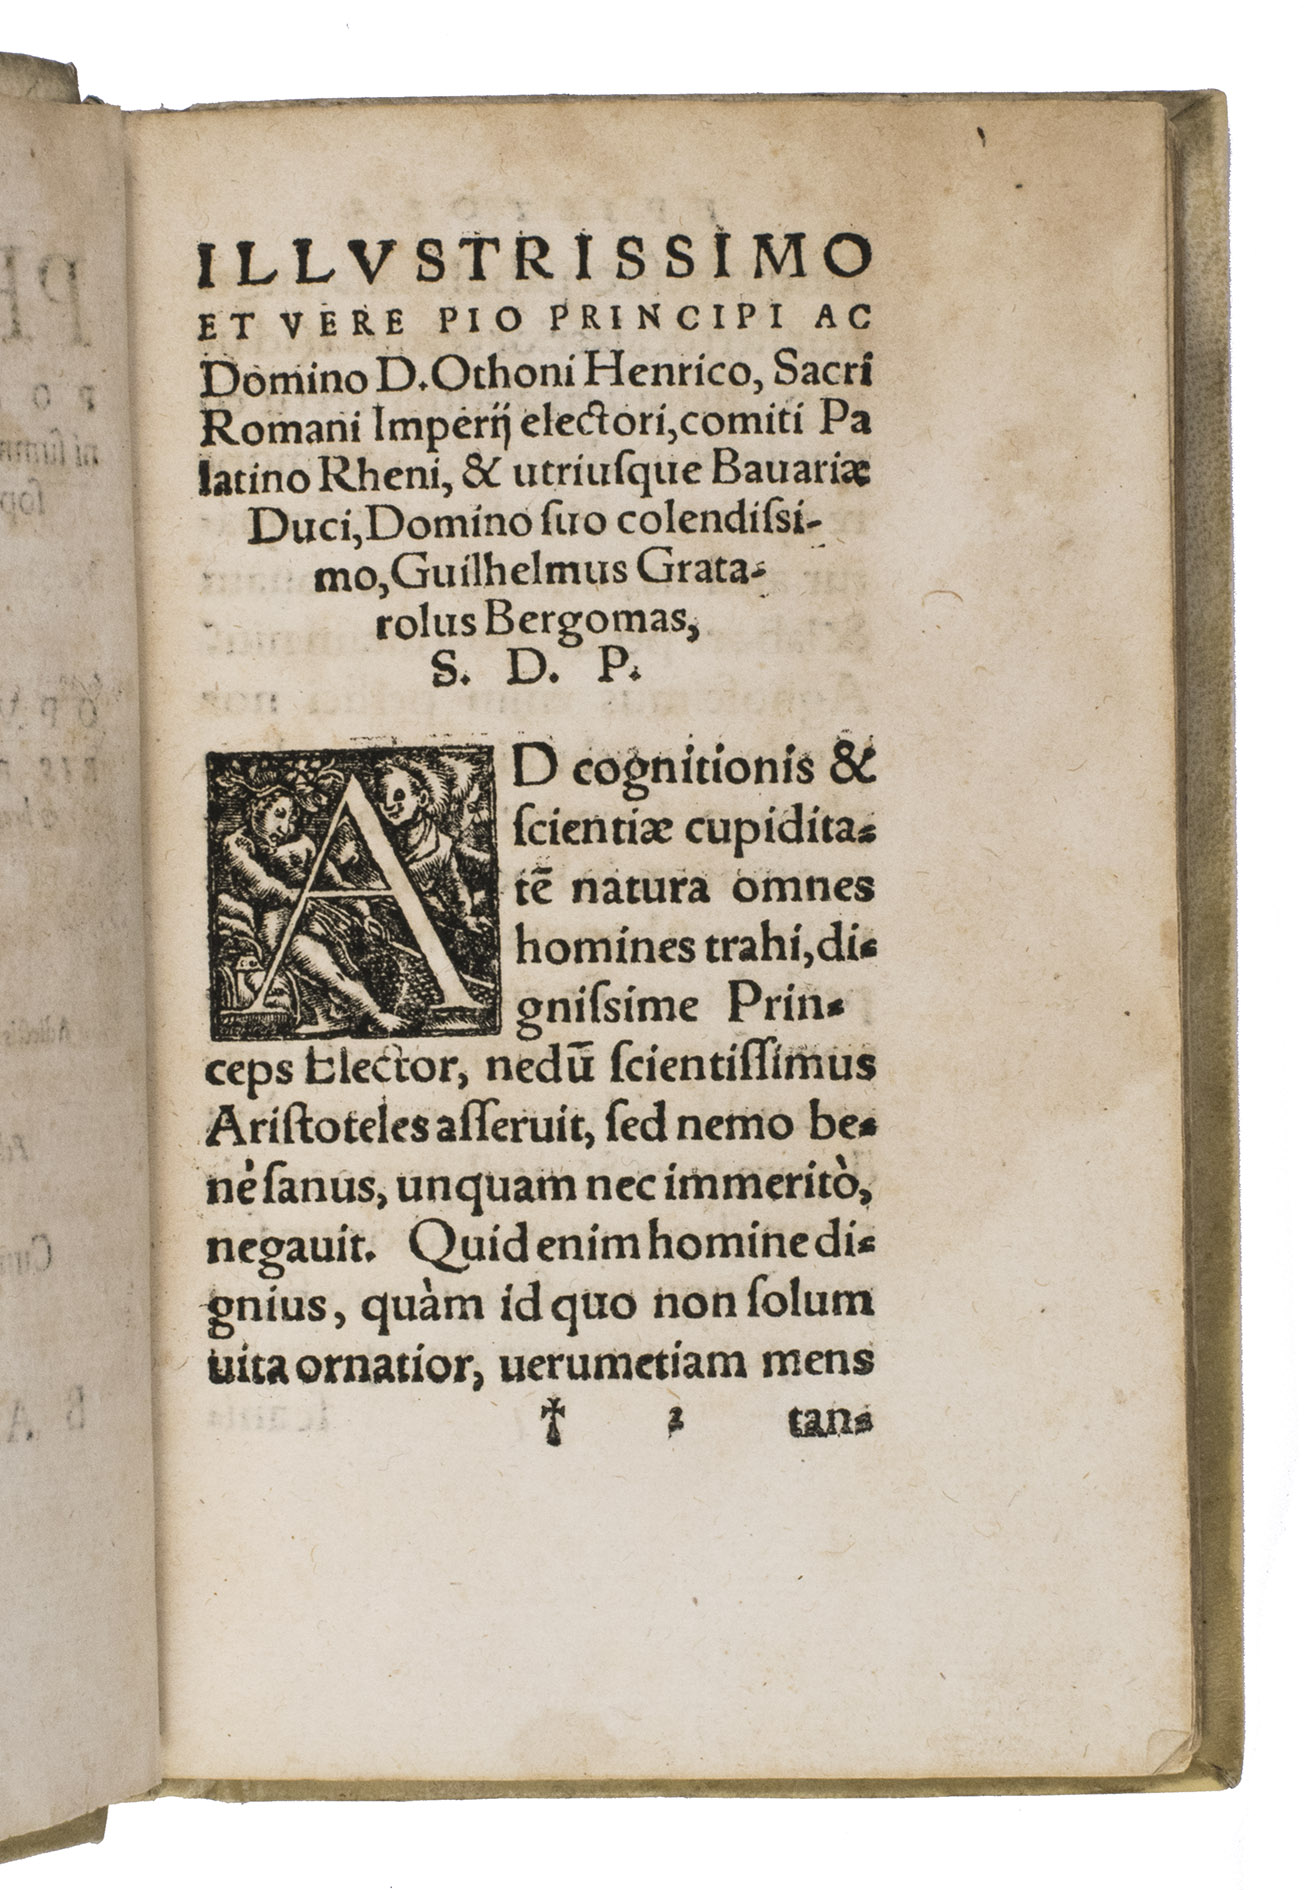 ILLVSTRISSIMO
ET VERE PIO PRINCIPI AC
Domino D. Othoni Henrico, Sacri
Romani Imperij electori, comiti Pa
latino Rheni, & utriuſque Bauariæ
Duci, Domino ſuo colendiſsi-
mo, Guilhelmus Grata-
rolus Bergomas,
S. D. P.
AD cognitionis &
ſcientiæ cupidita-
tē natura omnes
homines trahi, di-
gniſsime Prin-
ceps Elector, nedū ſcientiſſimus
Ariſtoteles aſſeruit, ſed nemo be-
nè ſanus, unquam nec immeritò,
negauit. Quid enim homine di-
gnius, quàm id quo non ſolum
uita ornatior, uerumetiam mens
† 2 tan-